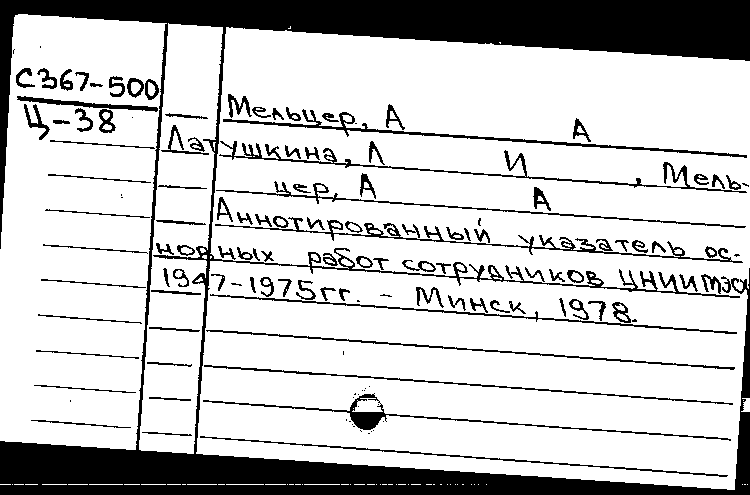 С367-500
Ц-38
Мельцер, А А
Латушкина, Л И , Мель-
цер, А А
Аннотированный указатель ос-
новных работ сотрудников ЦНИИТЭСХ
1947-1975гг. - Минск, 1978.